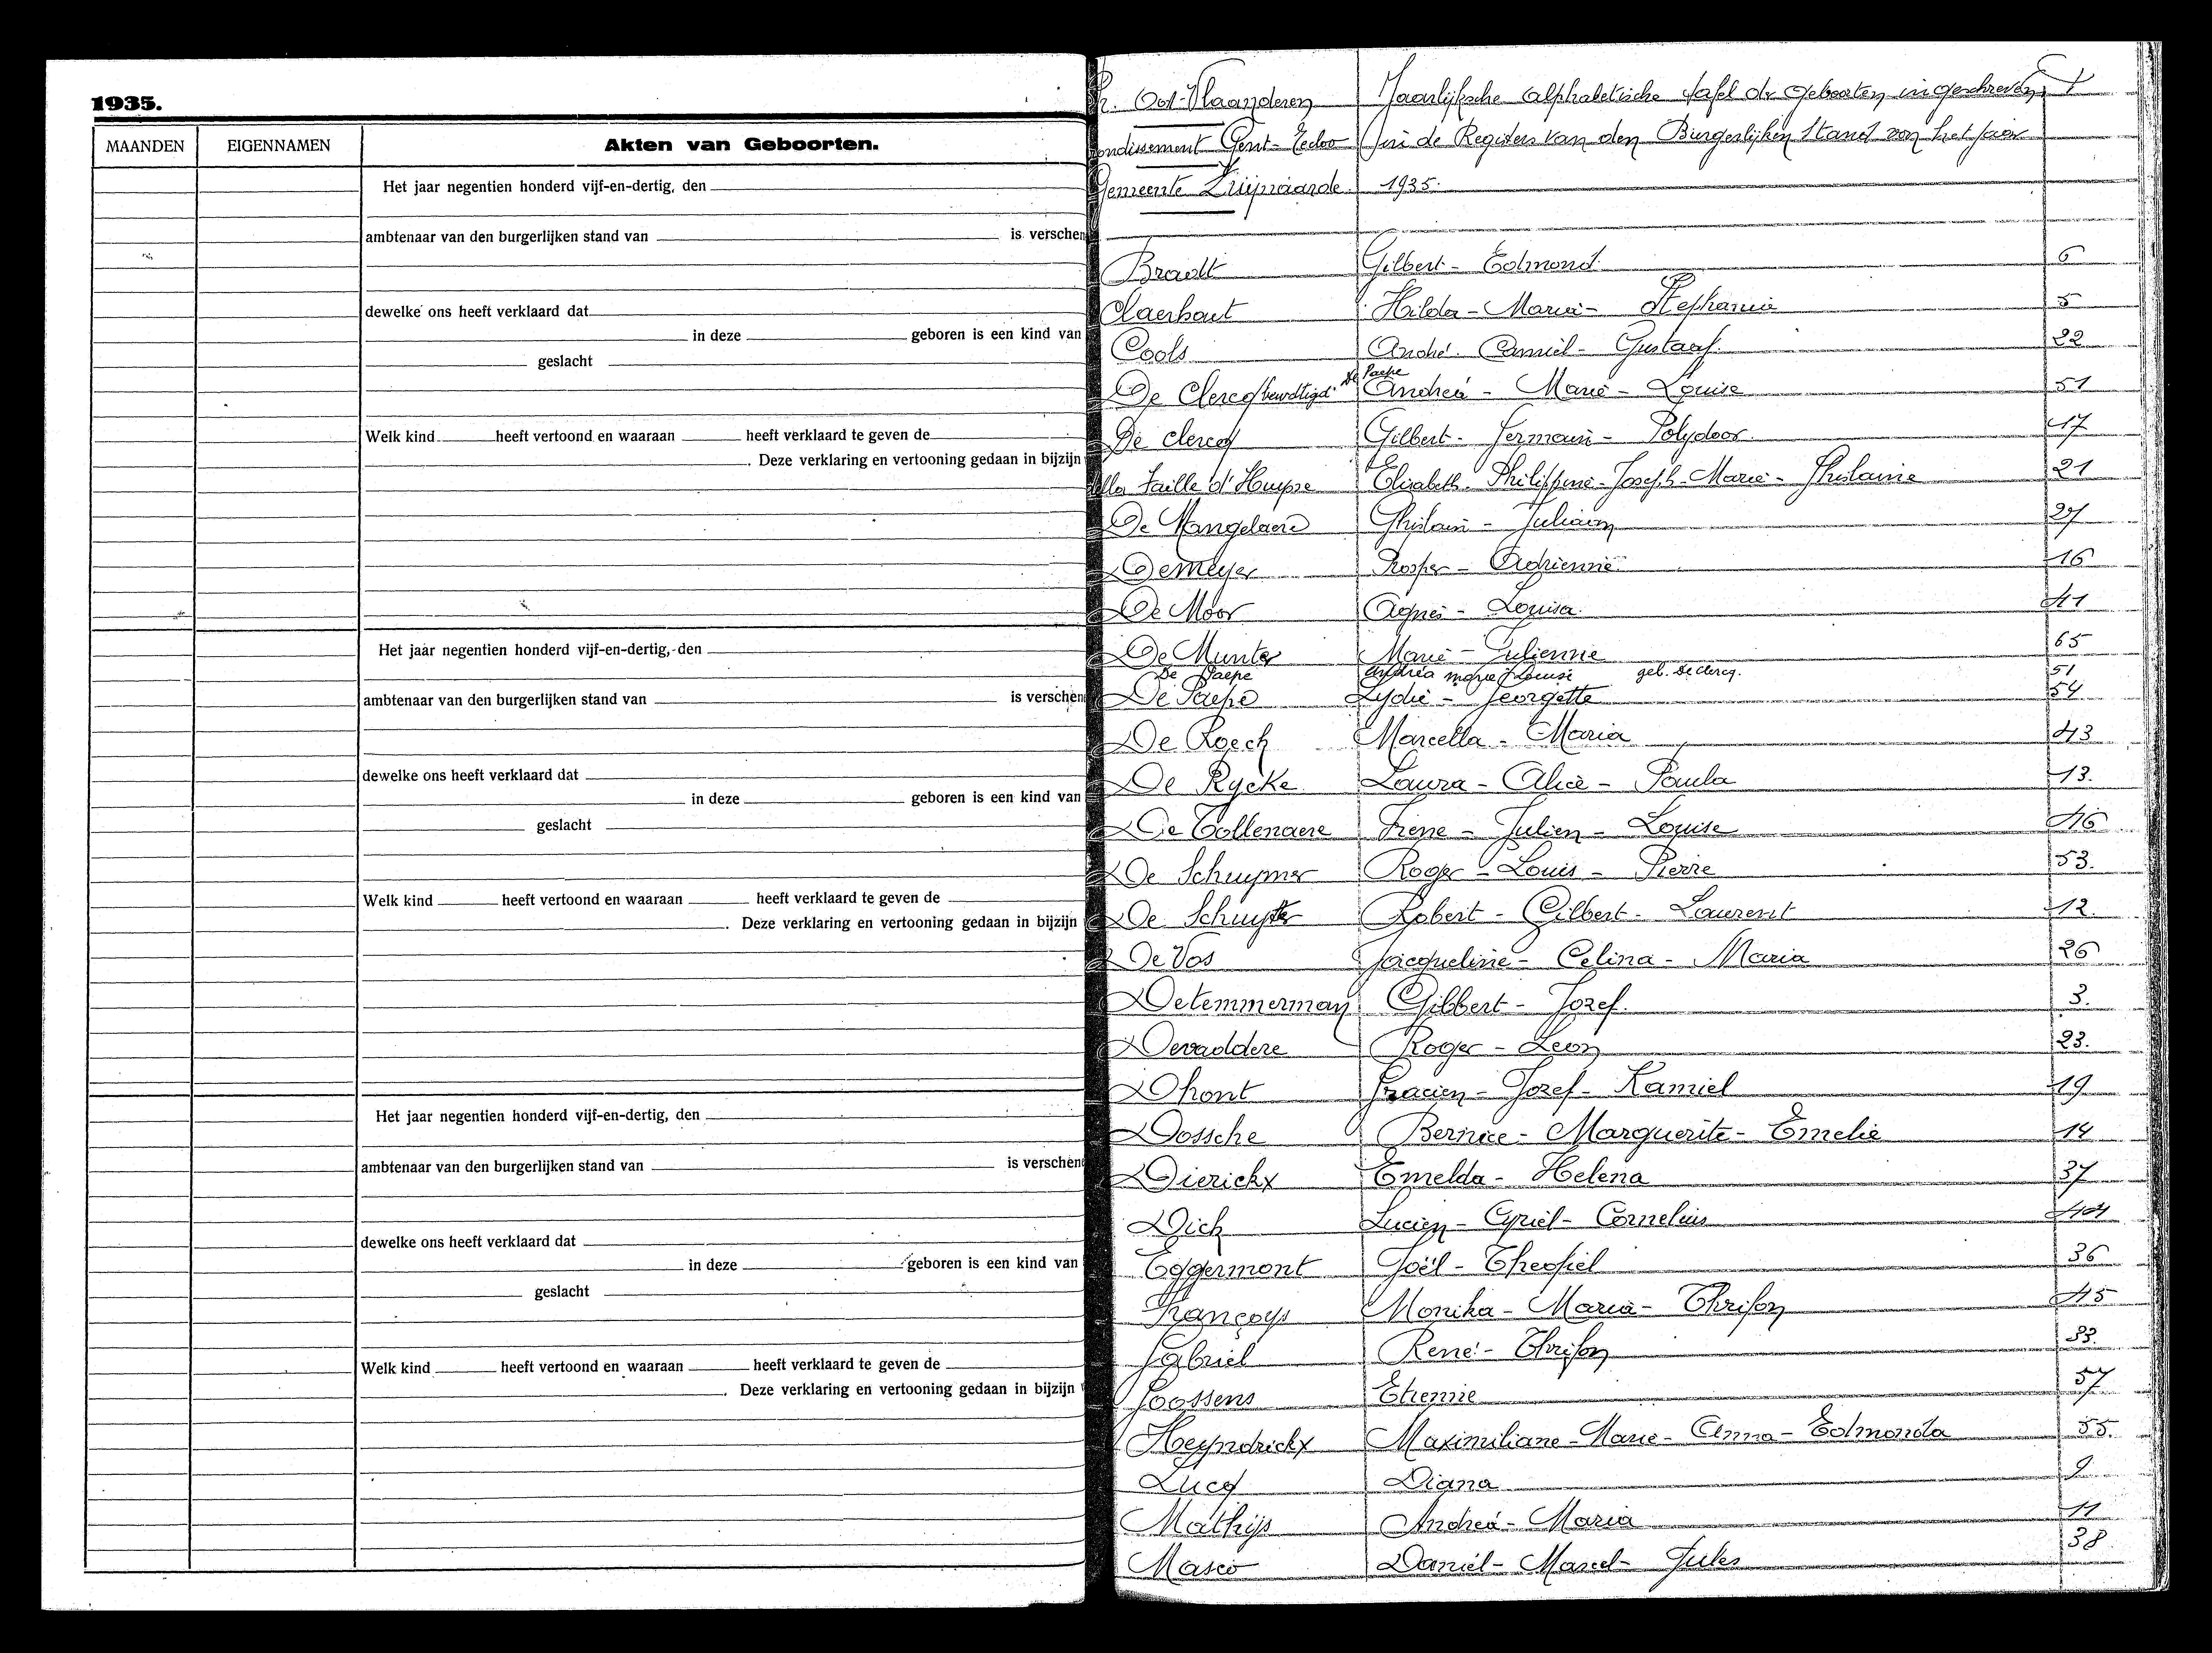 1935.
MAANDEN EIGENNAMEN Akten van Geboorten.
Het jaar negentien honderd vijf-en-dertig, den
ambtenaar van den burgerlijken stand van is verschen
dewelke ons heeft verklaard dat
in deze geboren is een kind van
geslacht
Welk kind heeft vertoond en waaraan heeft verklaard te geven de
. Deze verklaring en vertooning gedaan in bijzijn
Het jaar negentien honderd vijf-en-dertig, den
ambtenaar van den burgerlijken stand van is verschen
dewelke ons heeft verklaard dat
in deze geboren is een kind van
geslacht
Welk kind heeft vertoond en waaraan heeft verklaard te geven de
. Deze verklaring en vertooning gedaan in bijzijn
Het jaar negentien honderd vijf-en-dertig, den
ambtenaar van den burgerlijken stand van is verschen
dewelke ons heeft verklaard dat
in deze geboren is een kind van
geslacht
Welk kind heeft vertoond en waaraan heeft verklaard te geven de
. Deze verklaring en vertooning gedaan in bijzijn
Oost-Vlaanderen Jaarlijksche alphabetische tafel der Geboorten ingeschreven
ondissement Gent- Eecloo in de Registers van den Burgerlijken stand van het jaar
Gemeente Zwijnaarde 1935.
Bradt Gilbert - Edmond 6
Claerhout Hilda - Maria - Stephanie 5
Cools André - Camiel - Gustaaf 22
De Paepe
De Clercq Andrea - Marie - Louise 51
De Clercq Gilbert - Germain - Polydoor 17
lla Faille d'Huysse Elisabeth - Philippine - Joseph - Marie - Ghislaine 21
De Mangelaere Ghislain - Juliaan 27
Demeyer Prosper - Adrienne 16
De Moor Agnes - Louisa 41
De Munter Marie - Julienne 65
De Paepe Andréa Marie Louise geb. De Clercq. 51
De Paepe Lydie - Georgette 54
De Roeck Marcella - Maria 43
De Rycke Laura - Alice - Paula 13.
De Tollenaere Irene - Julien - Louise 46
De Schuymer Roger - Louis - Pierre 53.
De Schuyter Robert - Gilbert - Laurent 12.
De Vos Jacqueline - Celina - Maria 26
Detemmerman Gilbert - Jozef 3.
Devaddere Roger - Leon 23.
Dhont Gracien - Jozef - Kamiel 19
Dossche Bernice - Marguerite - Emelie 14
Dierickx Emelda - Helena 37
Dick Lucien - Cyriel - Cornelius 44
Eggermont Joël - Theofiel 36
Françoys Monika - Maria - Thrifon 45
Gabriel René - Thrifon 33.
Goossens Etienne 57
Heyndrickx Maximiliane - Marie - Anna - Edmonda 55.
Lucq Diana 9
Mathijs Andrea - Maria 11
Masco Daniël - Marcel - Jules 38